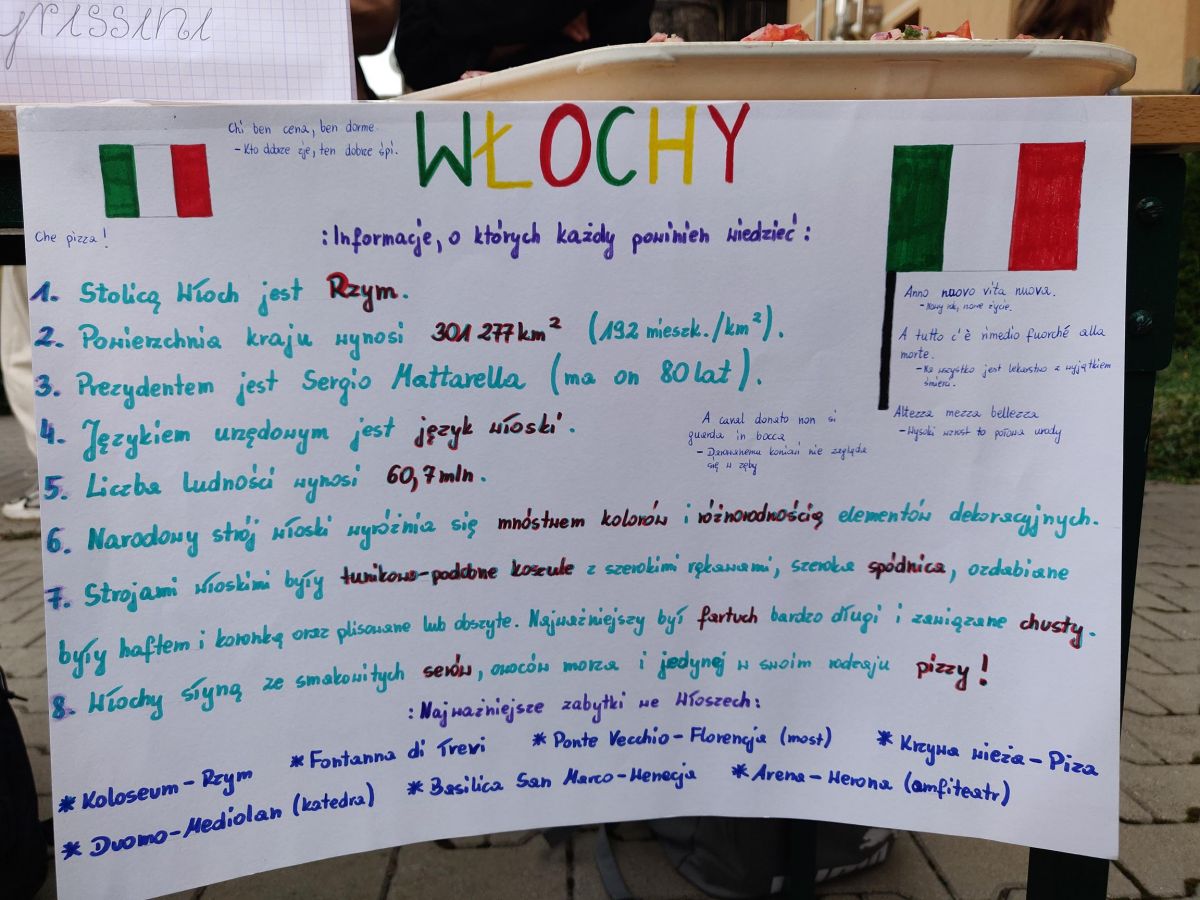 grissini
WŁOCHY
Chi ben cena, ben dorme.
- Kto dobrze zje, ten dobrze śpi.
Che pizza!
:Informacje, o których każdy powinien wiedzieć:
1. Stolicą Włoch jest Rzym.
2. Powierzchnia kraju wynosi 301 277 km² (192 mieszk./km²).
3. Prezydentem jest Sergio Mattarella (ma on 80 lat).
4. Językiem urzędowym jest język włoski.
5. Liczba ludności wynosi 60,7 mln.
6. Narodowy strój włoski wyróżnia się mnóstwem kolorów i różnorodnością elementów dekoracyjnych.
7. Strojami włoskimi były tunikowo-podobne koszule z szerokimi rękawami, szeroka spódnica, ozdabiane
były haftem i koronką oraz plisowane lub obszyte. Najważniejszy był fartuch bardzo długi i zawiązane chusty.
8. Włochy słyną ze smakowitych serów, owoców morza i jedynej w swoim rodzaju pizzy!
Anno nuovo vita nuova.
- Nowy rok, nowe życie.
A tutto c'è rimedio fuorché alla
morte.
- Na wszystko jest lekarstwo z wyjątkiem
śmierci.
Altezza mezza bellezza
- Wysoki wzrost to połowa urody
A caval donato non si
guarda in bocca
- Darowanemu koniowi nie zagląda
się w zęby
:Najważniejsze zabytki we Włoszech:
* Koloseum - Rzym
* Fontanna di Trevi
* Ponte Vecchio - Florencja (most)
* Krzywa wieża - Piza
* Duomo - Mediolan (katedra)
* Basilica San Marco - Wenecja
* Arena - Werona (amfiteatr)